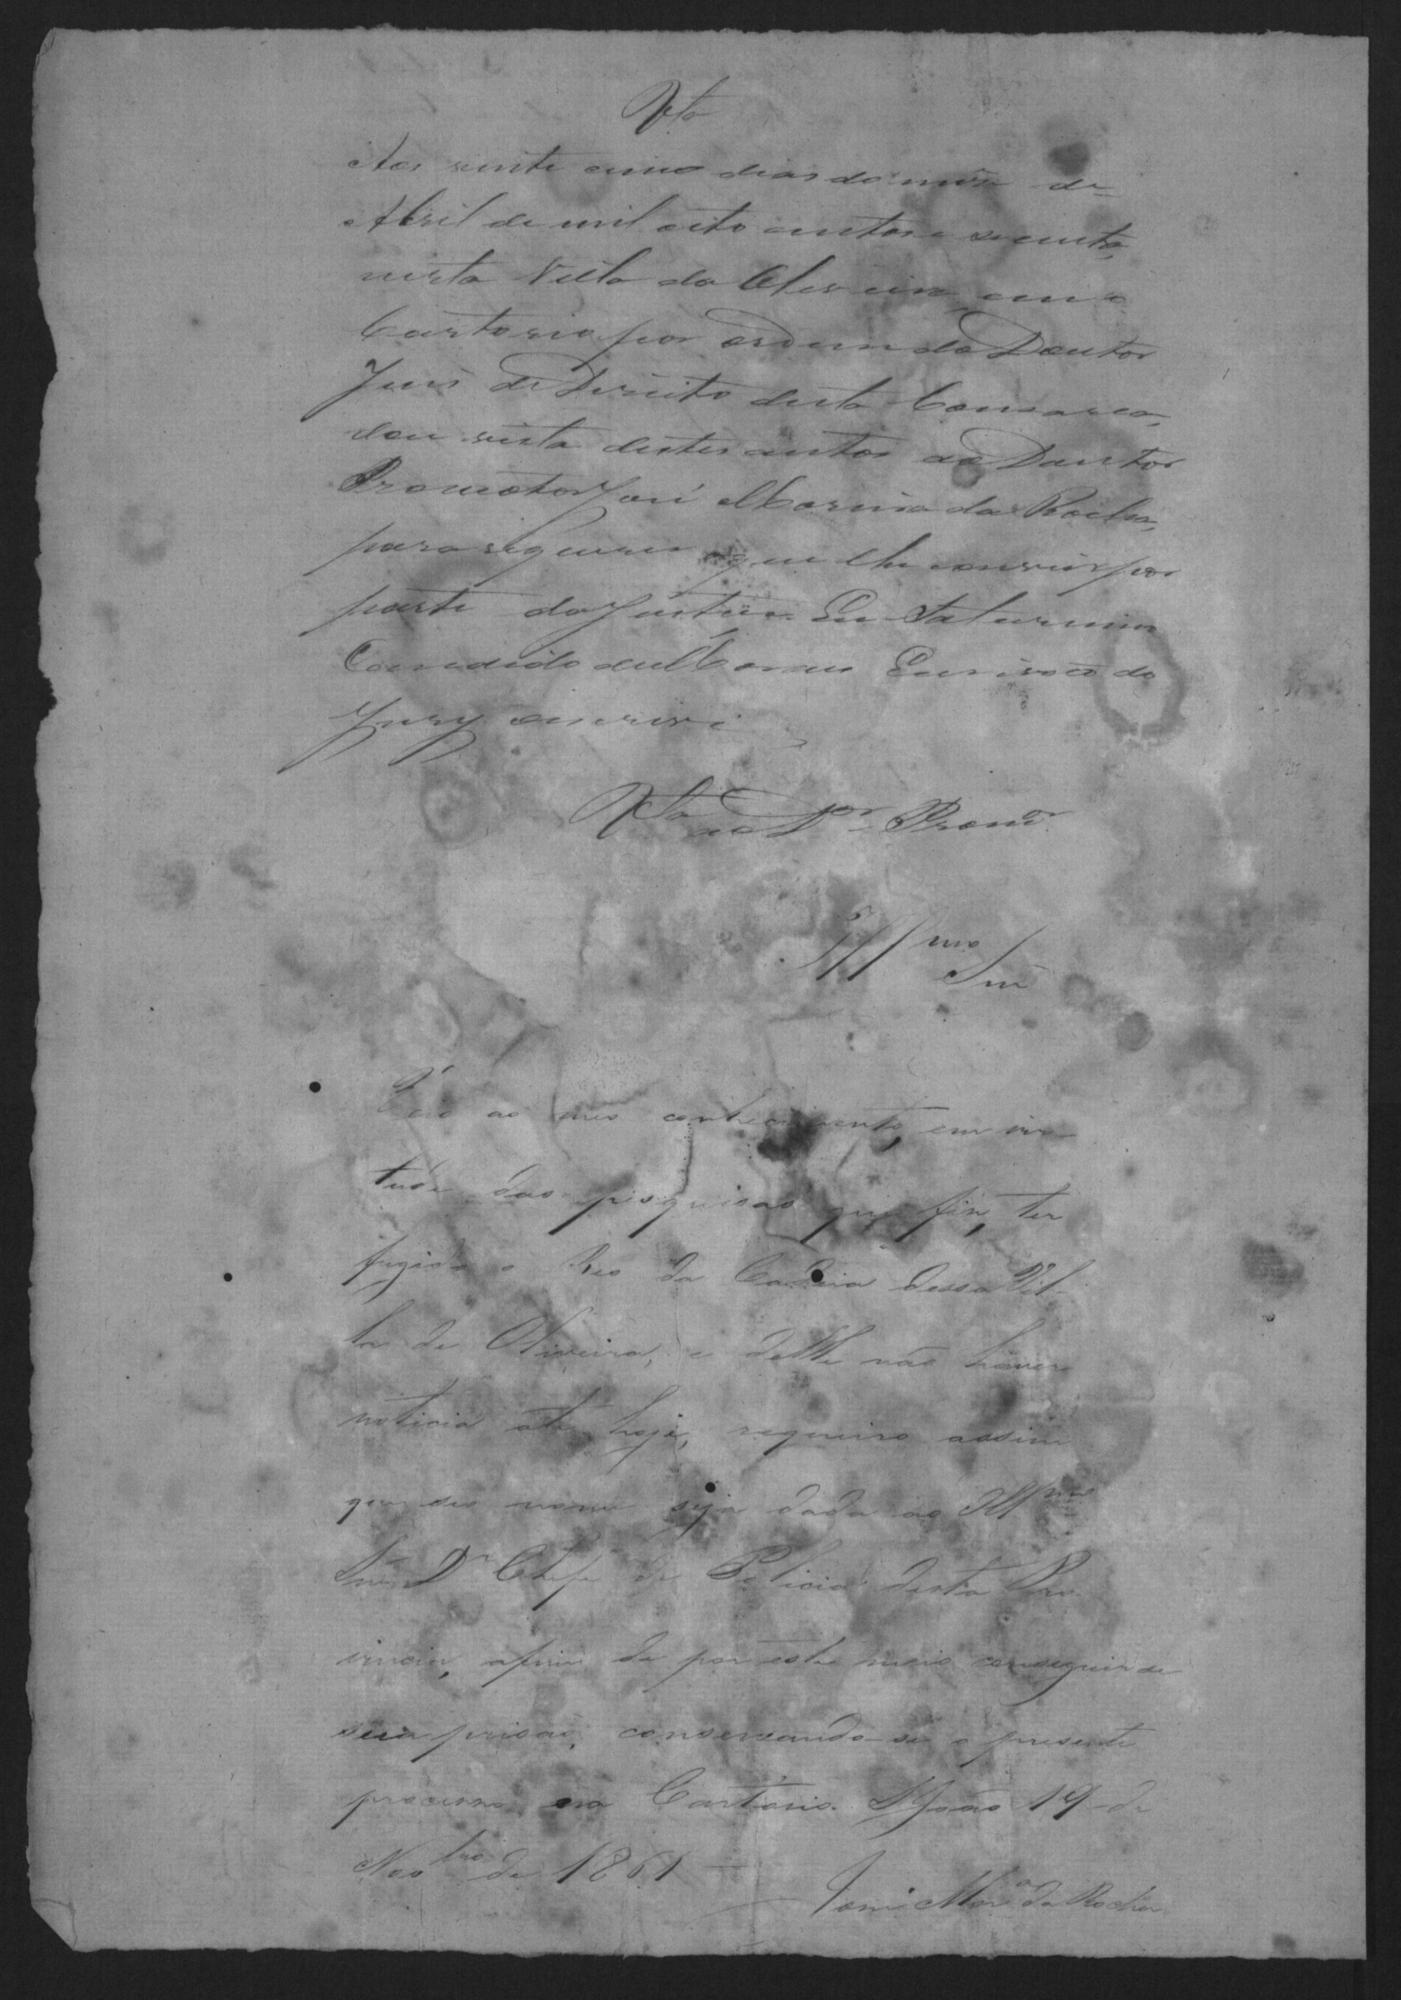 Vta
Aos vinte cinco dias do mes de
Abril de mil oito centos e secenta,
nesta Villa da Oliveira, em o
Cartorio por ordem do Doutor
Juis de Direito desta Comarca,
dou vista destes autos ao Doutor
Promotor José Marcíano da Rocha,
para requerer o que lhe convier por
parte da Justiça. Eu Saturnino
Candido de Moraes Escrivão do
Jury escrevi
Vta ao Dor Promor
Illmo Snr
Veio ao meo conhecimento, em vir-
tude das pisquisas que fiz, ter
fugido o Reo da Cadeia dessa Vil-
la de Oliveira, e delle não haver
noticia até hoje, requeiro assim
que seo nome seja dada ao Illmo
Snr Dr Chefe de Policia desta Pro
vincia, afim de por este meio conseguir se
sua prisão, conservando-se o presente
processo no Cartorio. S João 19 de
Novbro de 1861
José Mar da Rocha